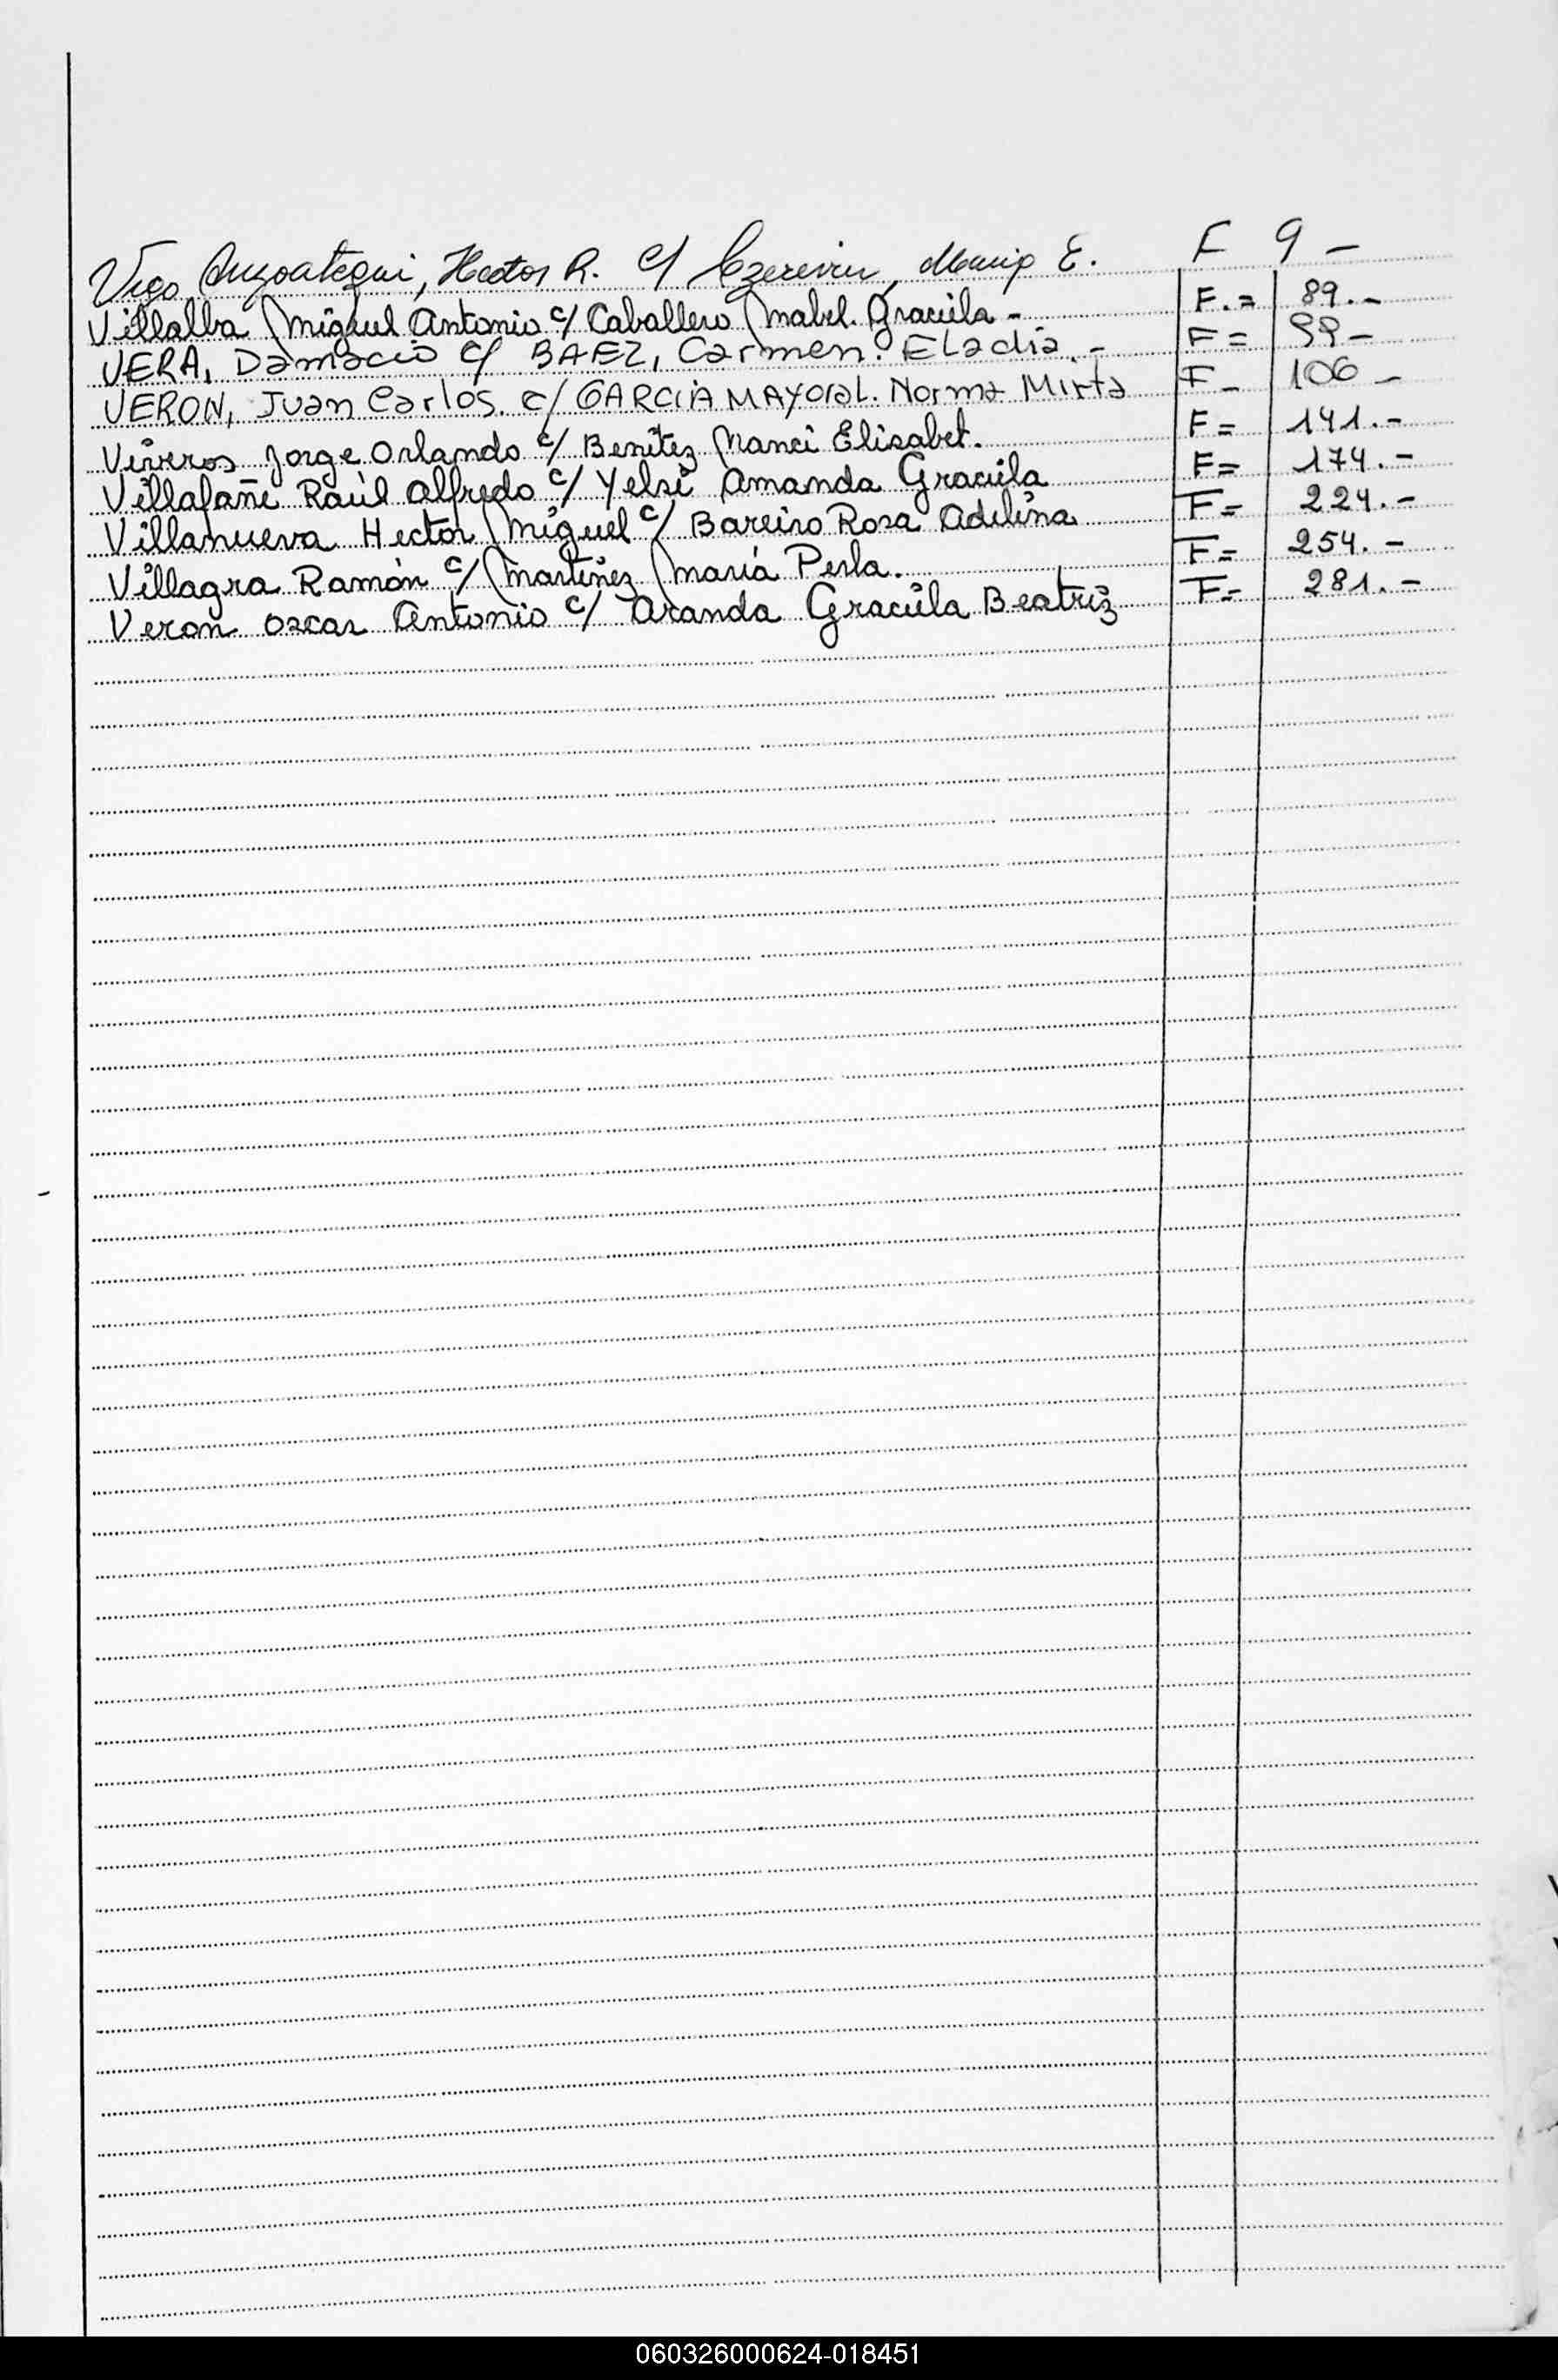 Vigo Anzoategui, Hector R. c/ Czerevin, Maria E. F 9 -
Villalba Miguel Antonio c/ Caballero Mabel. Graciela - F. = 89. -
VERA, Damacio c/ BAEZ, Carmen. ELadia. - F = 99 -
VERON, Juan Carlos. c/ GARCIA MAYORAL. Norma Mirta F - 106 -
Viveros Jorge Orlando c/ Benitez Nanci Elisabet. F = 141. -
Villafañe Raúl Alfredo c/ Yelsi Amanda Graciela F = 174. -
Villanueva Hector Miguel c/ Bareiro Rosa Adelina F = 224. -
Villagra Ramón c/ Martinez María Perla. F = 254. -
Veron Oscar Antonio c/ Aranda Graciela Beatriz F = 281. -
060326000624-018451